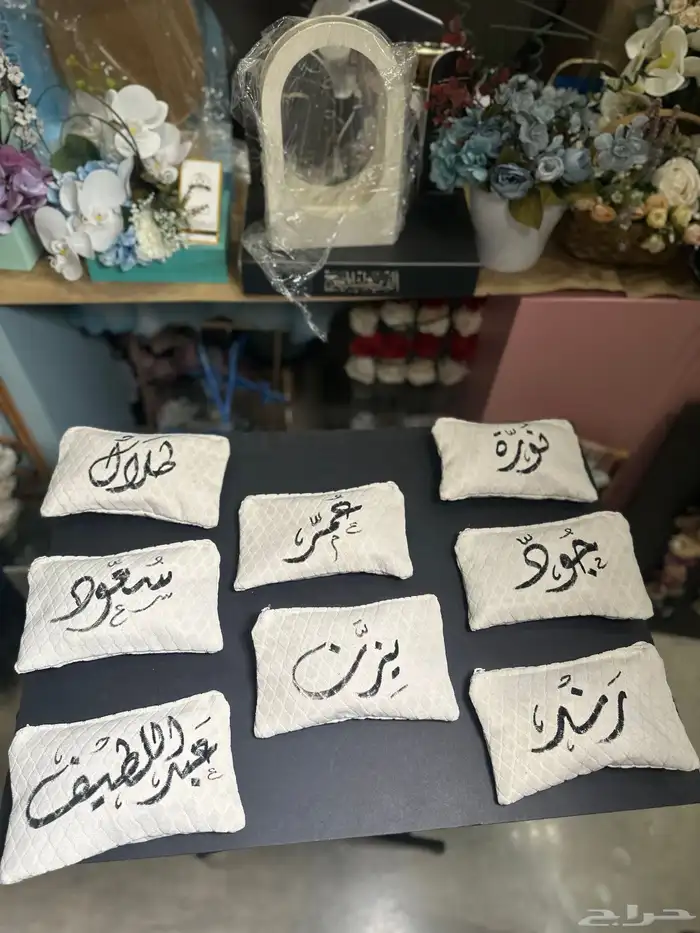 نورة
طلال
عمر
جود
سعود
يزن
رند
عبداللطيف
حراج